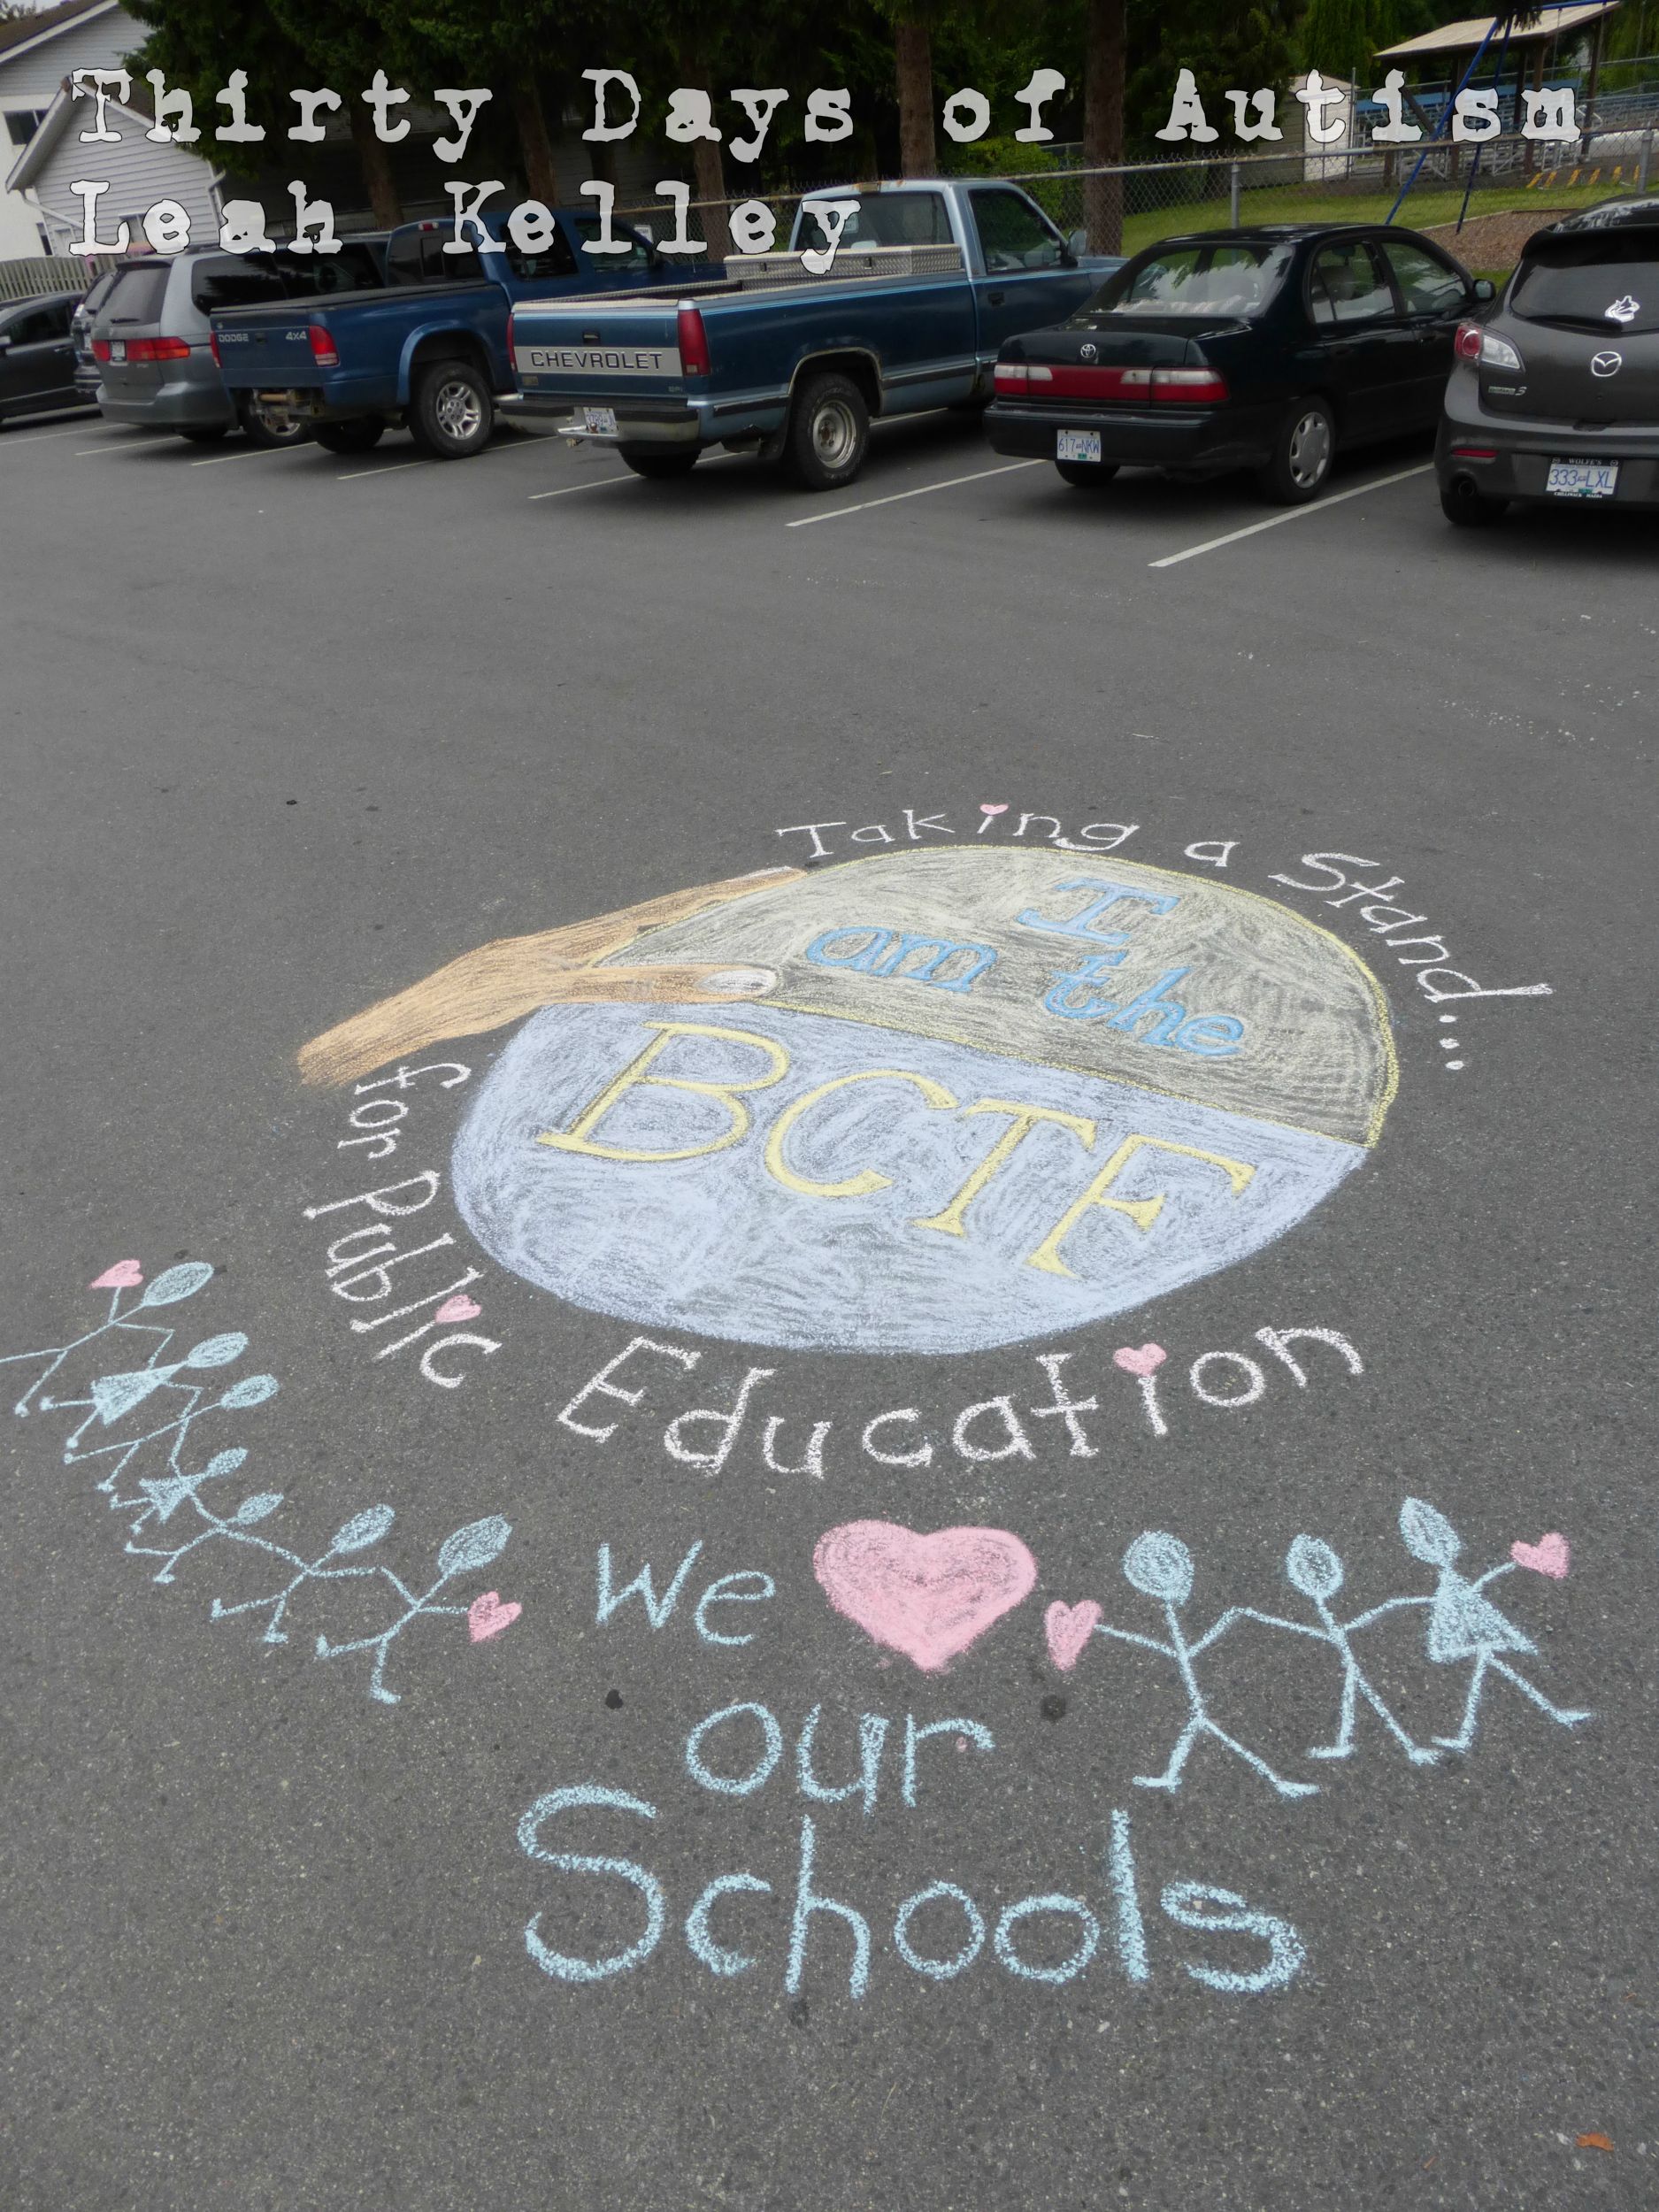 Thirty Days of Autism
Leah Kelley
DODGE 4X4
CHEVROLET
617-NKW
333-LXL
Taking a Stand...
I
am the
BCTF
for Public Education
We
our
Schools